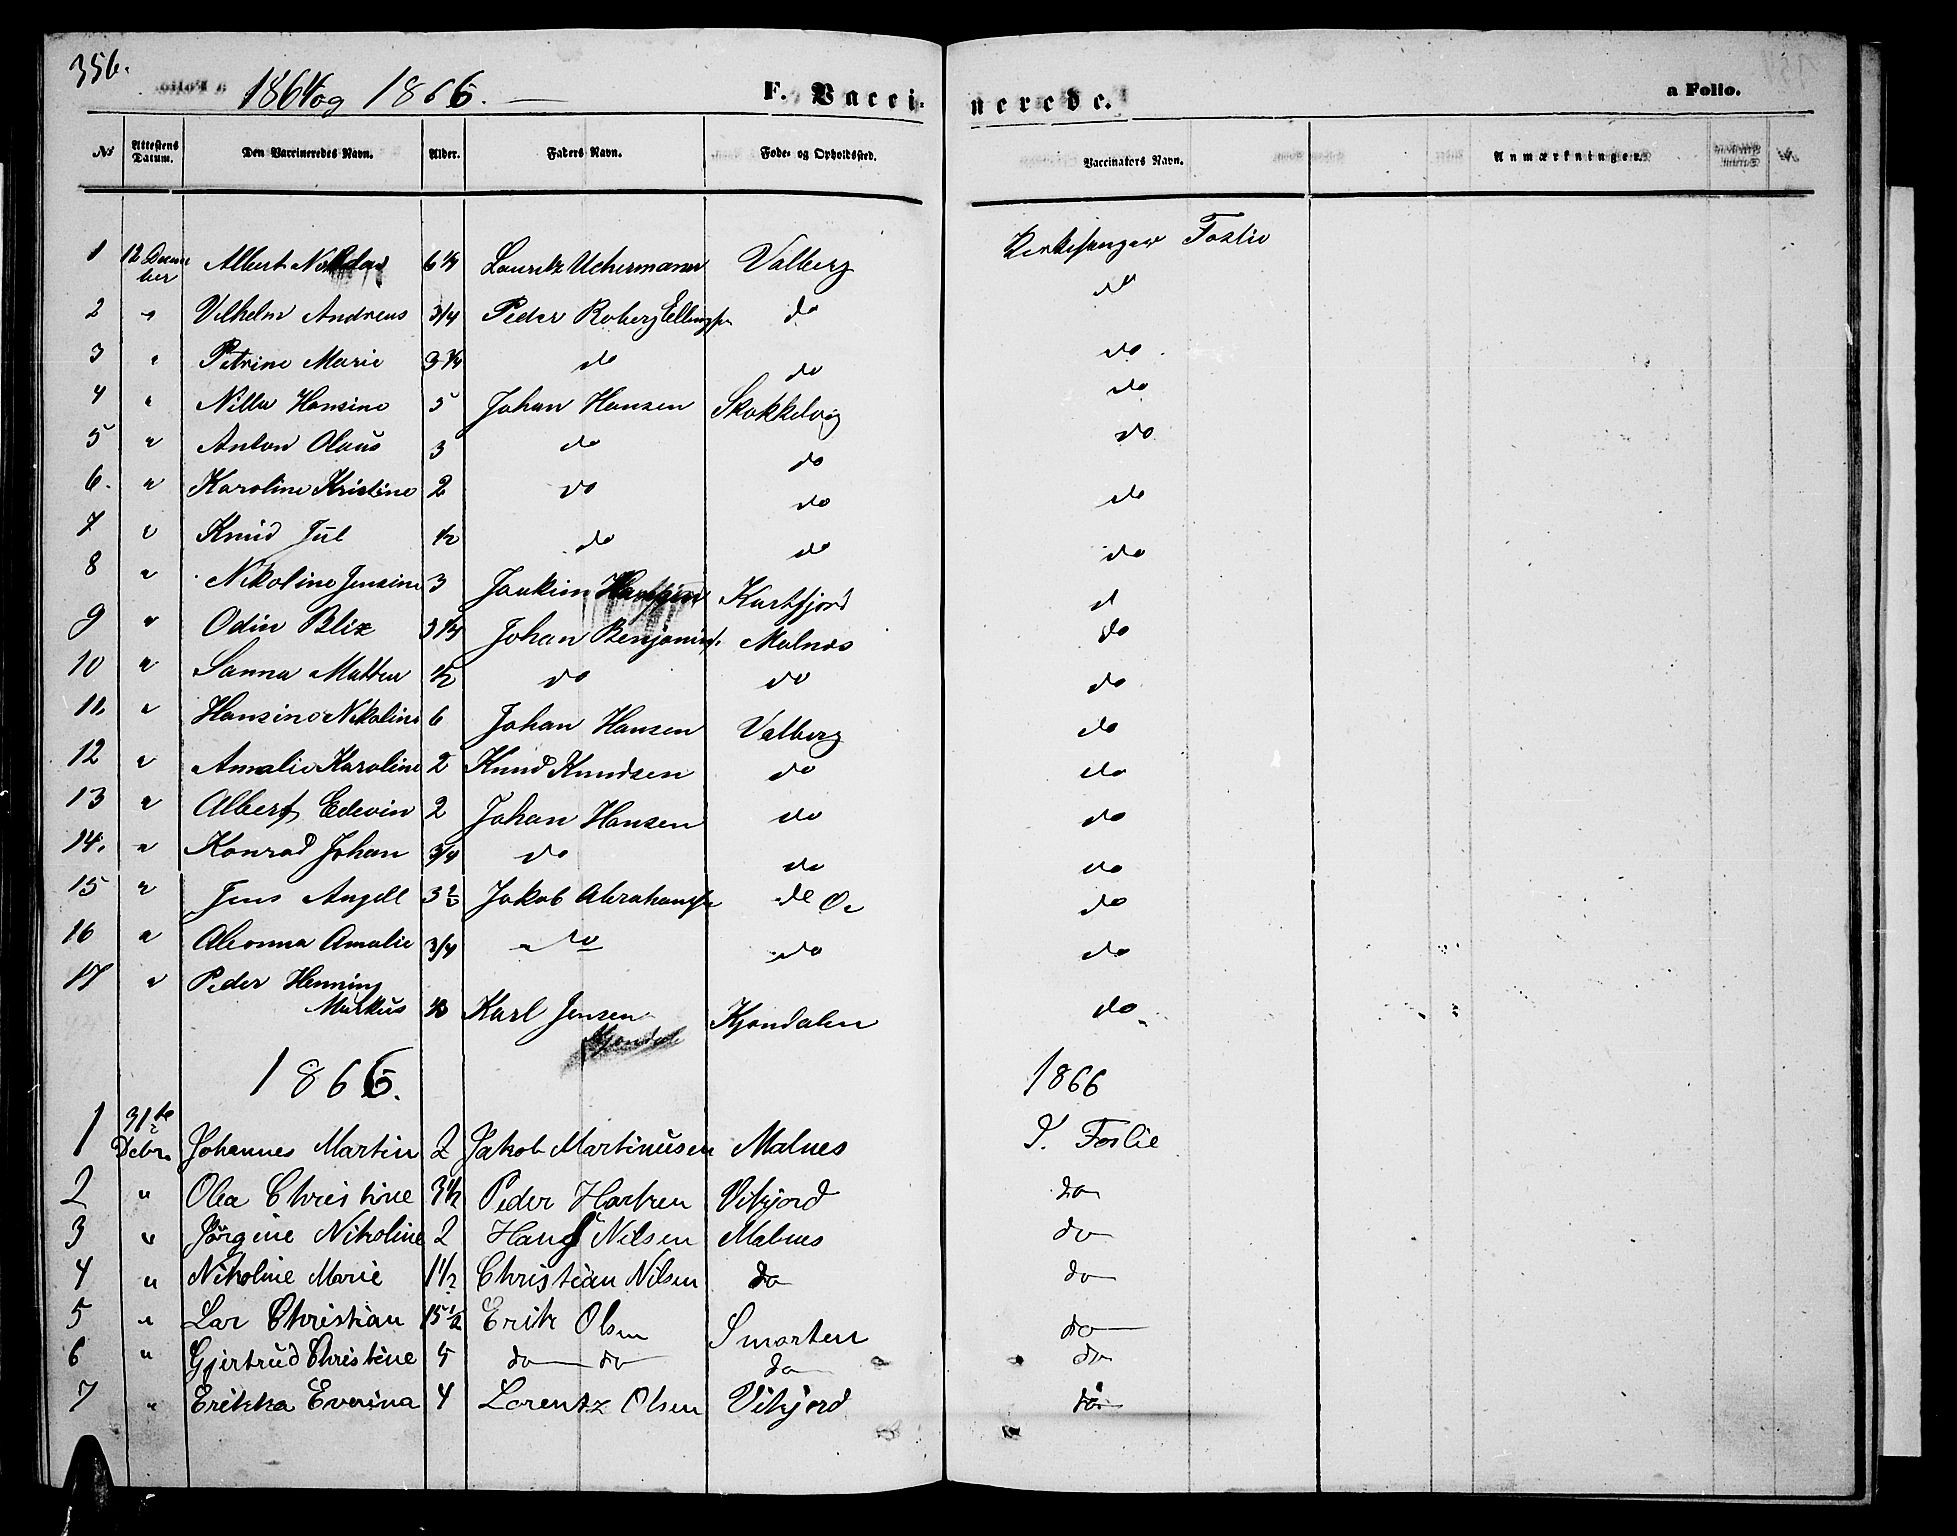 356.
1864 og 1866.
F. Vaccinerede.
a Folio.
No Attestens Datum. Den Vaccineredes Navn. Alder. Faders Navn. Føde- og Opholdssted. Vaccinators Navn. Anmærkninger.
1 12 Decem ber Albert 6 1/4 Lauritz Uchermann Valberg Kirkesanger Foslie
do
2 " Vilhelm Andreas 3/4 Peder Roberg Ellingsen do
3 " Petrine Marie 3 3/4 do do do
4 " Nilla Hansine 5 Johan Hansen Skokkelvig do
5 " Anton Olaus 3 do do do
6. " Karoline Kristine 2 do do do
7 " Knud Jul 1/2 do do do
8 " Nikoline Jensine 3 Joakim Hansen Kartfjord d
9 " Odin Blix 3 1/4 Johan Benjamins. Malnes do
10 " Sanna Mattea 1/2 do do do
11. " Hansine Nikoline 6 Johan Hansen Valberg do
12 " Amalie Karoline 2 Knud Knudsen do do
13 " Albert Edevin 2 Johan Hansen do do
14. " Konrad Johan 3/4 do do do
15 " Jens Angell 3 1/2 Jakob Abrahamsen do do
16 " Aleonna Amalie 3/4 " do do do
17 " Peder Henning
Markus Karl Jensen Kjøndalen do
1866. 1866
1 31te Debr. Johannes Martin 2 Jakob Martinusen Malnes Foslie
2 " Olea Christine 3 1/2 Peder Vikjord do
3 " Jørgine Nikoline 2 Hans Nilsen Malnes do
4 " Nikoline Marie 1 1/2 Christian Nilsen do do
5 " Lar Christian 15 1/2 Erik Olsen Smorten do
6 " Gjertrud Christine 5 do do do do
7 " Erikka Everina 4 Lorentz Olsen Vikjord do